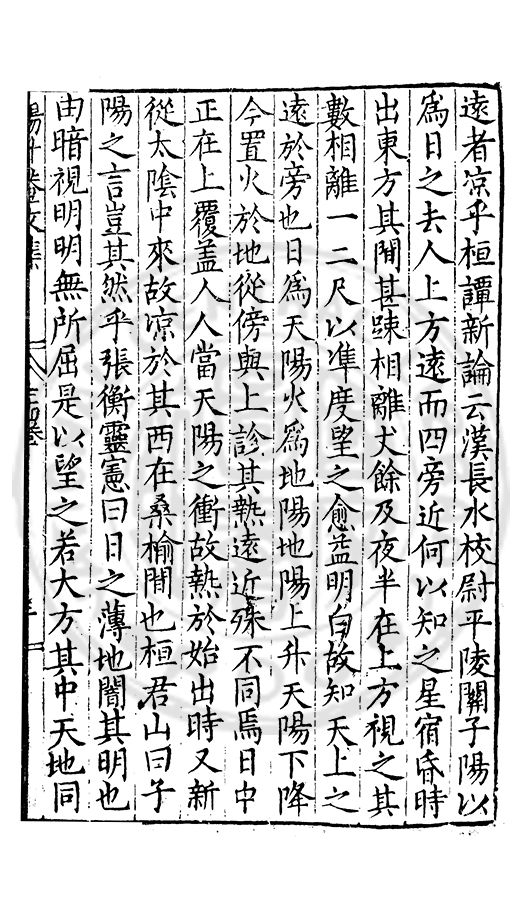 遠者凉乎桓譚新論云漢長水校尉平陵關子陽以
爲日之去人上方遠而四旁近何以知之星宿昏時
出東方其閒甚踈相離丈餘及夜半在上方視之其
數相離一二尺以準度望之愈益明白故知天上之
遠於旁也日爲天陽火爲地陽地陽上升天陽下降
今置火於地從傍與上診其熱遠近殊不同焉日中
正在上覆盖人人當天陽之衝故熱於始出時又新
從太陰中來故凉於其西在桑榆閒也桓君山曰子
陽之言豈其然乎張衡靈憲曰日之薄地闇其明也
由暗視明明無所屈是以望之若大方其中天地同